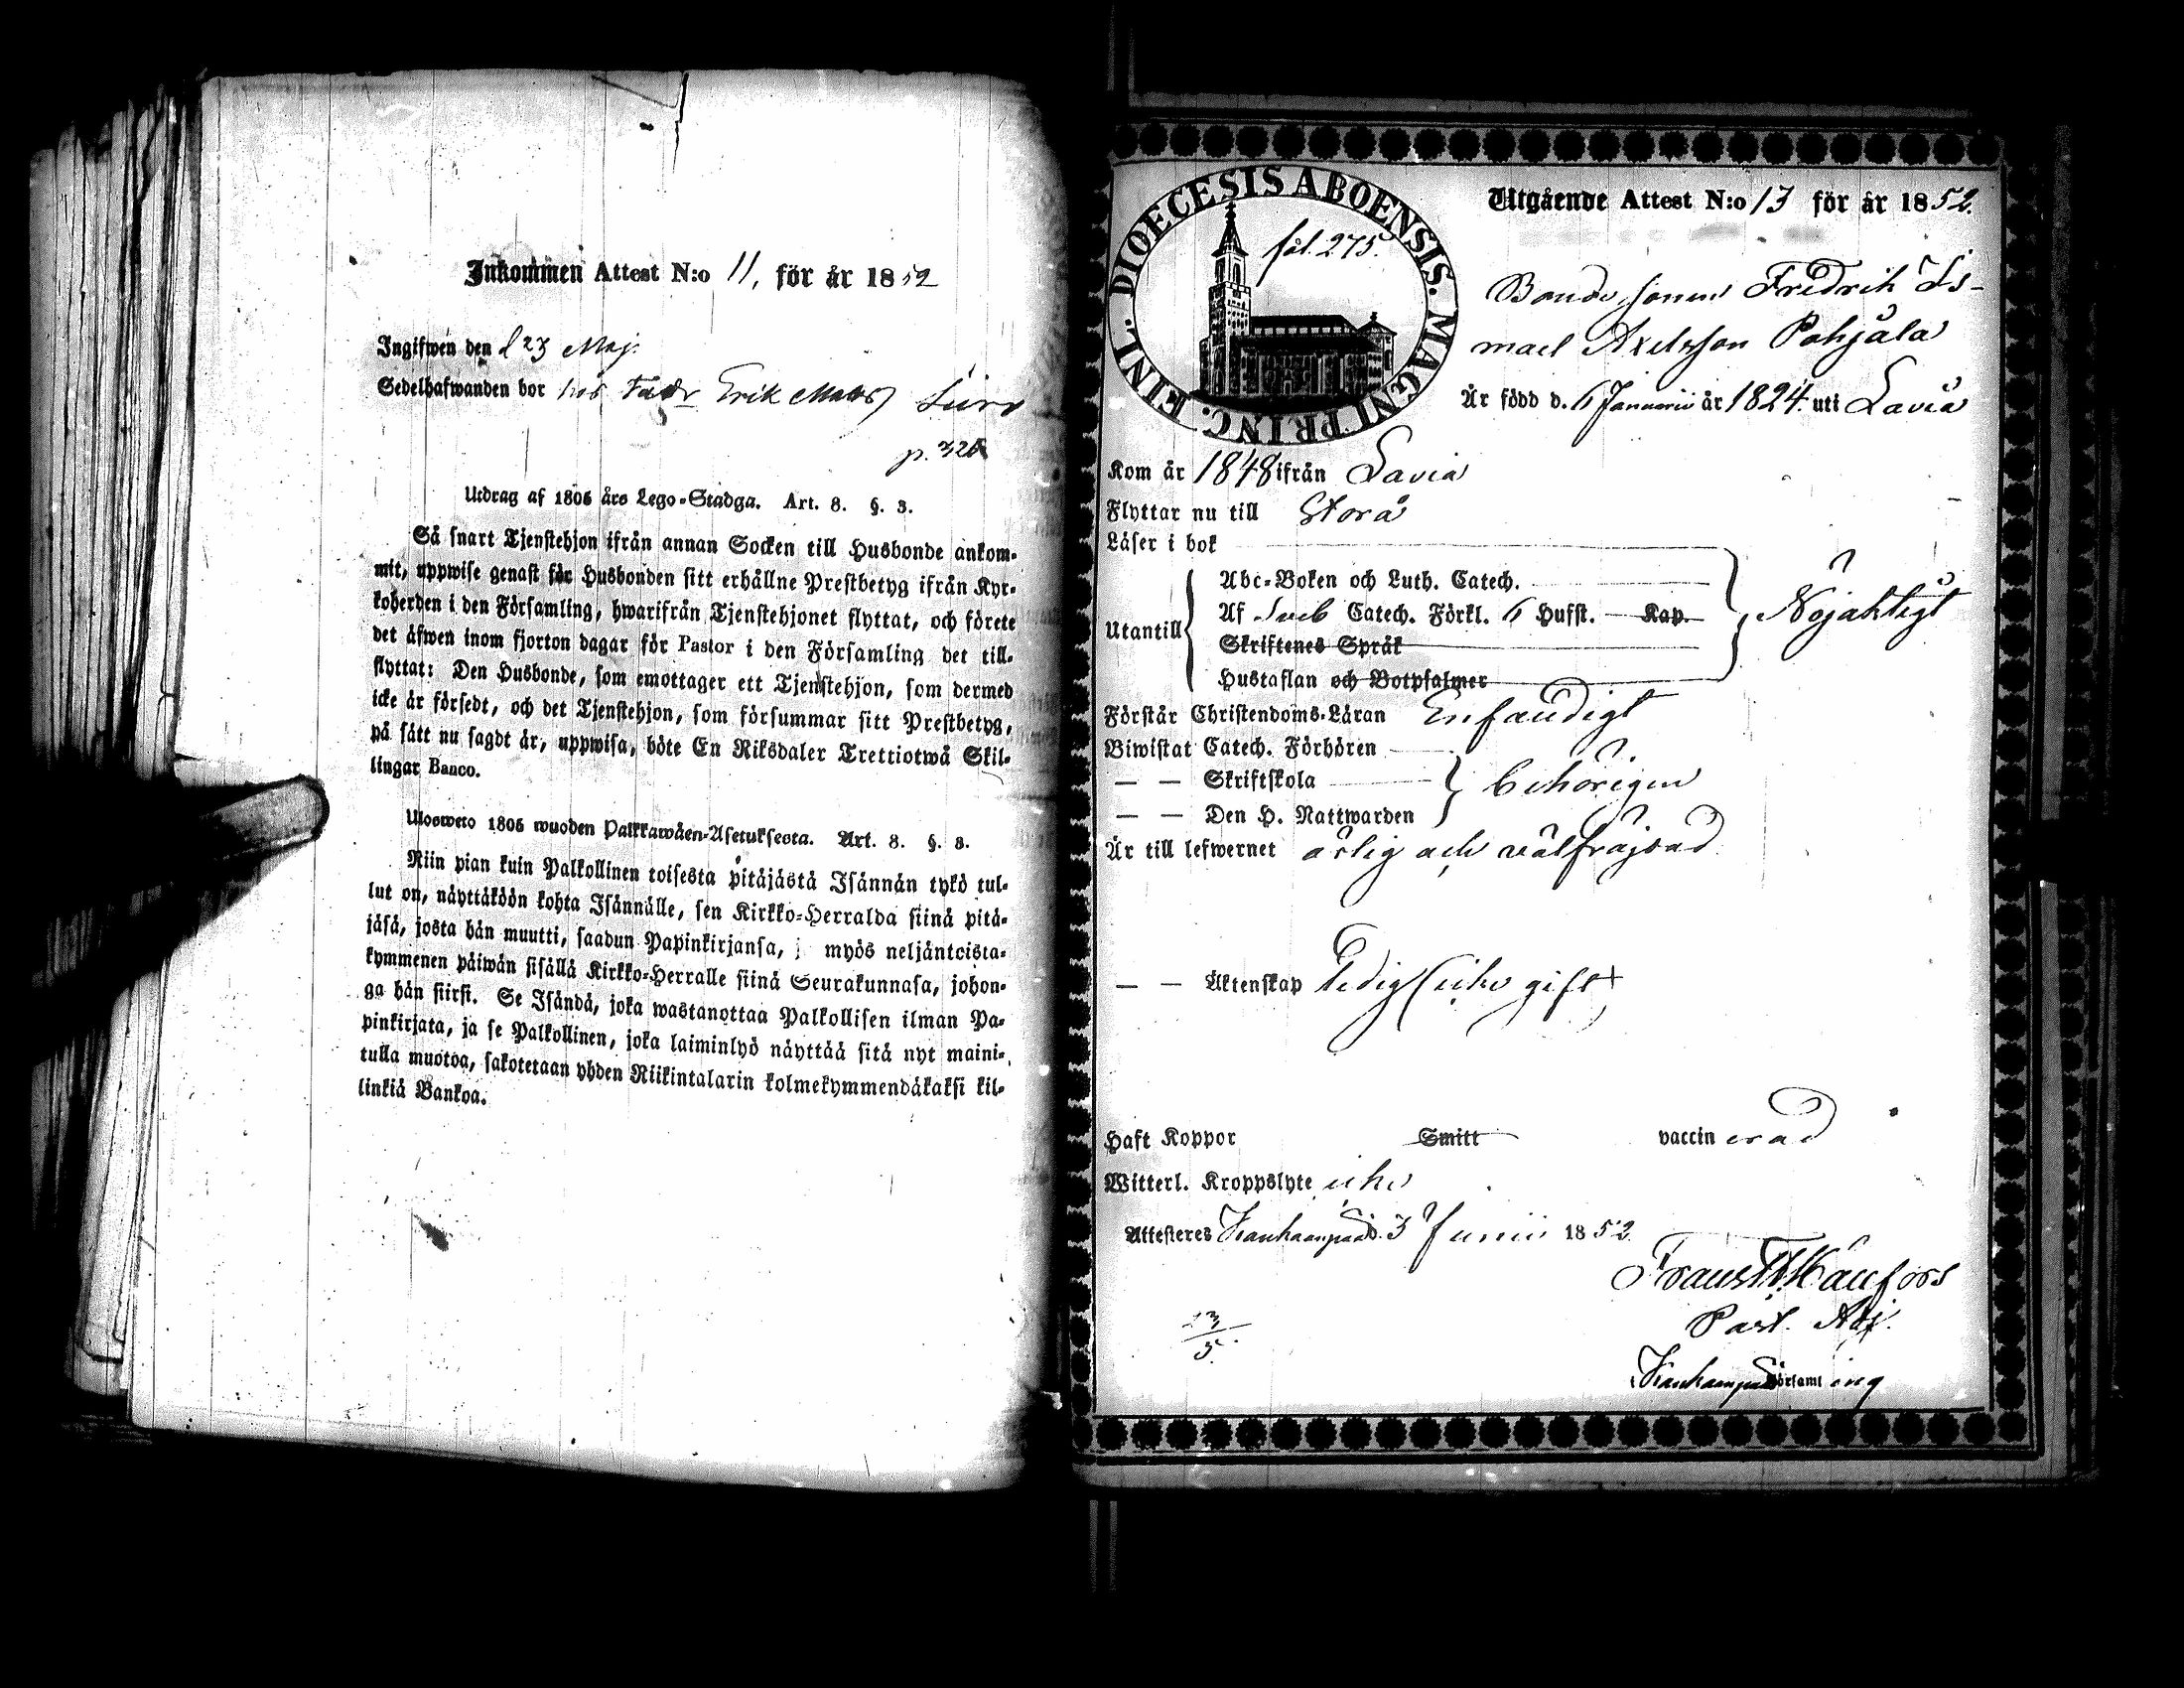 Inkommen Attest N:o 11, för år 1852
Ingifwen den d 23 Maj.
Sedelhafwanden bor hos Erik Matts
p. 326
Utdrag af 1805 års Lego-Stadga. Art. 8. §. 3.
Så snart Tjenstehjon ifrån annan Socken till Husbonde ankom-
mit, uppwise genast för Husbonden sitt erhållne Prestbetyg ifrån Kyr-
koherden i den Församling, hwarifrån Tjenstehjonet flyttat, och förete
det äfwen inom fjorton dagar för Pastor i den Församling det till-
flyttat: Den Husbonde, som emottager ett Tjenstehjon, som dermed
icke är försedt, och det Tjenstehjon, som försummar sitt Prestbetyg,
på sätt nu sagdt är, uppwisa, böte En Riksdaler Trettiotwå Skil-
lingar Banco.
Ulosweto 1805 wuoden Palkkawäen-Asetuksesta. Art. 8. §. 3.
Niin pian kuin Palkollinen toisesta pitäjästä Isännän tykö tul-
lut on, näyttäköön kohta Isännälle, sen Kirkko-Herralda siinä pitä-
jäsä, josta hän muutti, saadun Papinkirjansa, j myös neljäntoista-
kymmenen päiwän sisällä Kirkko-Herralle siinä Seurakunnasa, johon-
ga hän siirsi. Se Isändä, joka wastanottaa Palkollisen ilman Pa-
pinkirjata, ja se Palkollinen, joka laiminlyö näyttää sitä nyt maini-
tulla muotoa, sakotetaan yhden Riikintalarin kolmekymmendäkaksi kil-
linkiä Bankoa.
DIOECESIS ABOENSIS. MAGNI PRINC. FINL.
fol. 275.
Utgående Attest N:o 13 för år 1852.
Bonde sonen Fredrik Is-
mael Axelsson Pohjala
Är född d. 6 Januarii år 1824. uti Lavia
Kom år 1848 ifrån Lavia
Flyttar nu till Storå
Läser i bok
Utantill
Abc-Boken och Luth. Catech.
Af Sveb Catech. Förkl. 6 Hufst. Kap.
Skriftenes Språk
Hustaflan och Botpsalmer
Nöjaktigt
Förstår Christendoms-Läran Enfaldigt
Biwistat Catech. Förhören
— — Skriftskola
— — Den H. Nattwarden
behörigen
Är till lefwernet ärlig och välfräjdad
— — Äktenskap Ledig (icke gift)
Haft Koppor Smitt vaccinerad
Witterl. Kroppslyte icke
Attesteres Kankaanpää d. 3 Junii 1852.
Past. Adj.
Kankaanpää Församling
23
5.